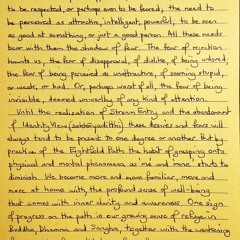 to be respected, or perhaps even to be feared, the need to
be perceived as attractive, intelligent, powerful, to be seen
as good at something, or just a good person. All these needs
bear with them the shadow of fear. The fear of rejection
haunts us, the fear of disapproval, of dislike, of being unloved,
the fear of being perceived as unattractive, of seeming stupid,
or weak, or bad. Or, perhaps worst of all, the fear of being
invisible, deemed unworthy of any kind of attention.
Until the realization of Stream Entry and the abandonment
of Identity View (sakkāyadiṭṭhi) these desires and fears will
always tend to be present to one degree or another. But by
practice of the Eightfold Path the habit of grasping onto
physical and mental phenomena as 'me' and 'mine' starts to
diminish. We become more and more familiar, more and
more at home with the profound sense of well-being
that comes with inner clarity and awareness. One sign
of progress on the path is our growing sense of refuge in
Buddha, Dhamma and Sangha, together with the weakening